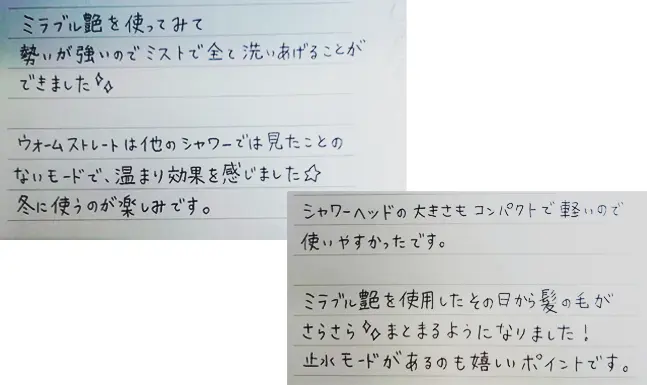 ミラブル艶を使ってみて
勢いが強いのでミストで全て洗いあげることが
できました✧✧
ウォームストレートは他のシャワーでは見たことの
ないモードで、温まり効果を感じました☆
冬に使うのが楽しみです。
シャワーヘッドの大きさもコンパクトで軽いので
使いやすかったです。
ミラブル艶を使用したその日から髪の毛が
さらさら✧✧まとまるようになりました!
止水モードがあるのも嬉しいポイントです。